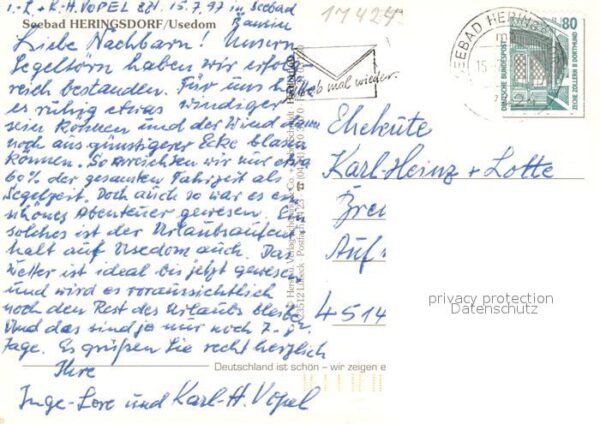 I.-L. + K.-H. VOPEL z.Zt. 15.7.97 in Seebad
Bansin
Seebad HERINGSDORF/Usedom
Liebe Nachbarn! Unsern
Segeltörn haben wir erfolg-
reich bestanden. Für uns hätte
es ruhig etwas windiger
sein können und der Wind dann
noch aus günstigerer Ecke blasen
können. So erreichten wir nur etwa
60% der gesamten Fahrzeit als
Segelzeit. Doch auch so war es ein
schönes Abenteuer gewesen. Ein
solches ist der Urlaubsaufent
halt auf Usedom auch. Das
Wetter ist ideal bis jetzt gewesen
und wird es voraussichtlich
noch den Rest des Urlaubs bleiben
Und das sind ja nur noch 7-8
Tage. Es grüßen Sie recht herzlich
Ihre
Inge-Lore und Karl-H. Vopel
17424
mal wieder.
SEEBAD HERINGS
15
80
DEUTSCHE BUNDESPOST
ZECHE ZOLLERN II DORTMUND
Eheleute
Karl-Heinz + Lotte
Auf
4514
privacy protection
Datenschutz
Deutschland ist schön – wir zeigen e